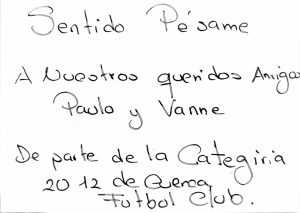 Sentido Pésame
A Nuestros queridos Amigos
Paulo y Vanne
De parte de la Categiria
2012 de Cuenca
Futbol Club.